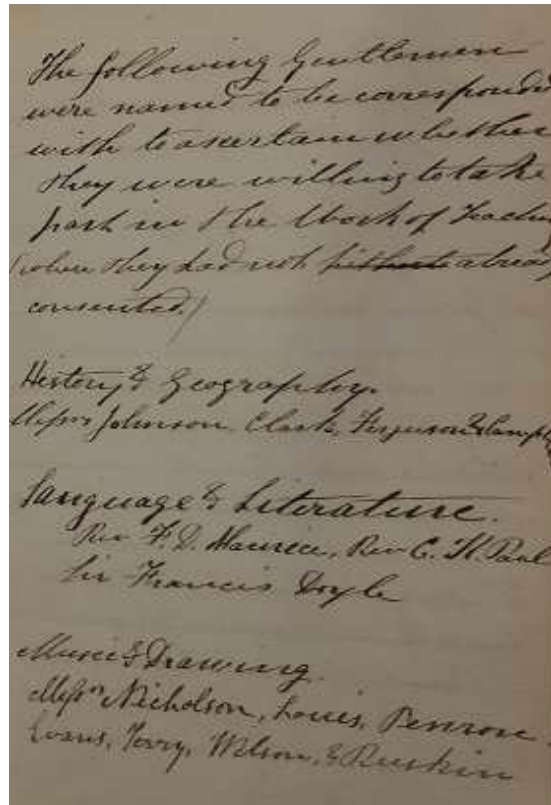 The following Gentlemen
were named to be correspond
with to ascertain whether
they were willing to take
part in the Work of Teachin
(where they had not hitherto alread
consented.)
History & Geography.
Messrs Johnson, Clark, Ferguson &
Language & Literature.
Rev F. D. Maurice, Rev C. K. Paul
Sir Francis Doyle
Music & Drawing.
Messrs Nicholson, Louis, Penrose.
Evans, Terry, Wilson, & Ruskin